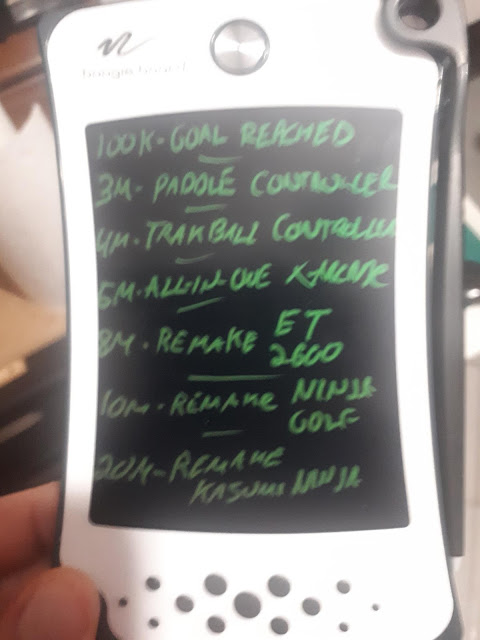 boogie board
100K-GOAL REACHED
3M- PADDLE CONTROLLER
4M-TRAKBALL CONTROLLER
6M-ALL-IN-ONE X-ARCADE
8M-REMAKE ET
2600
10M-REMAKE NINJA
GOLF
20M-REMAKE
KASUMI NINJA